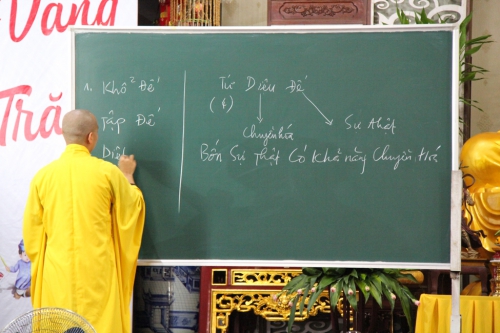 Vàng
Tră
1. Khổ Đế
Tập Đế
Diệt
Tứ Diệu Đế
(4)
Chuyển hóa
Sự thật
Bốn Sự Thật Có Khả năng Chuyển Hoá